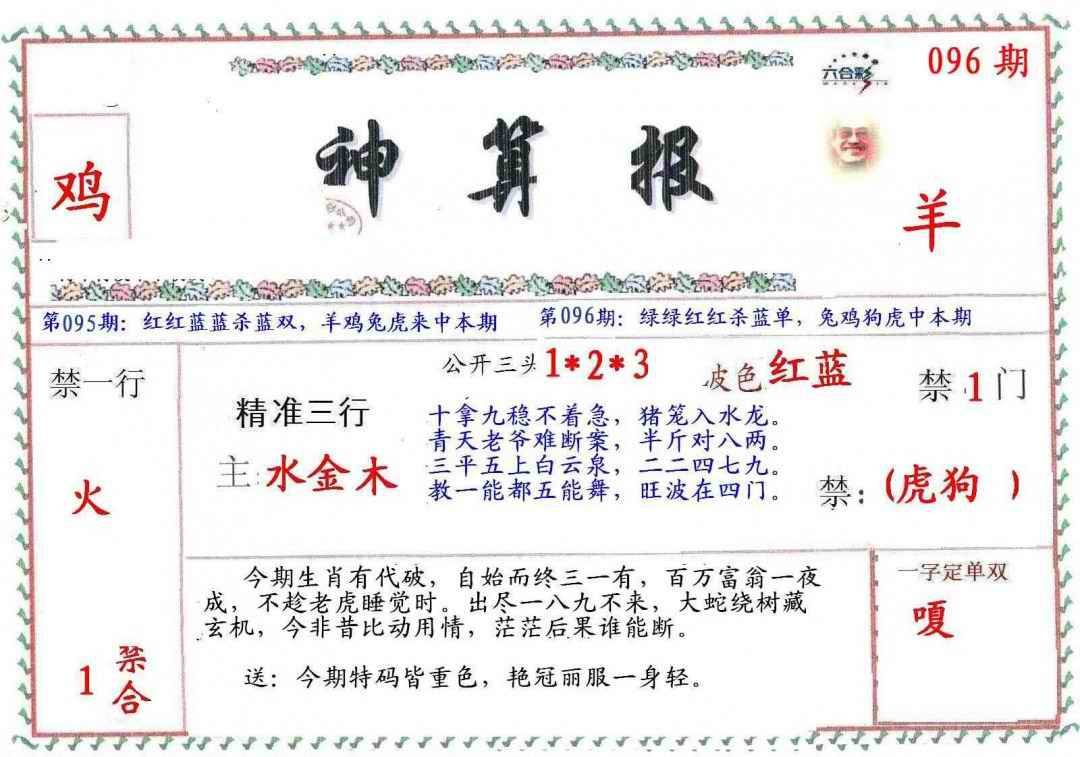 096 期
六合彩
鸡
神算报
羊
第095期：红红蓝蓝杀蓝双，羊鸡兔虎来中本期
第096期：绿绿红红杀蓝单，兔鸡狗虎中本期
禁一行
火
1 禁合
公开三头 1*2*3
波色 红蓝
禁 1 门
精准三行
主：水金木
十拿九稳不着急，猪笼入水龙。
青天老爷难断案，半斤对八两。
三平五上白云泉，二二四七九。
教一能都五能舞，旺波在四门。
禁：(虎狗 )
今期生肖有代破，自始而终三一有，百万富翁一夜
成，不趁老虎睡觉时。出尽一八九不来，大蛇绕树藏
玄机，今非昔比动用情，茫茫后果谁能断。
送：今期特码皆重色，艳冠丽服一身轻。
一字定单双
嗄